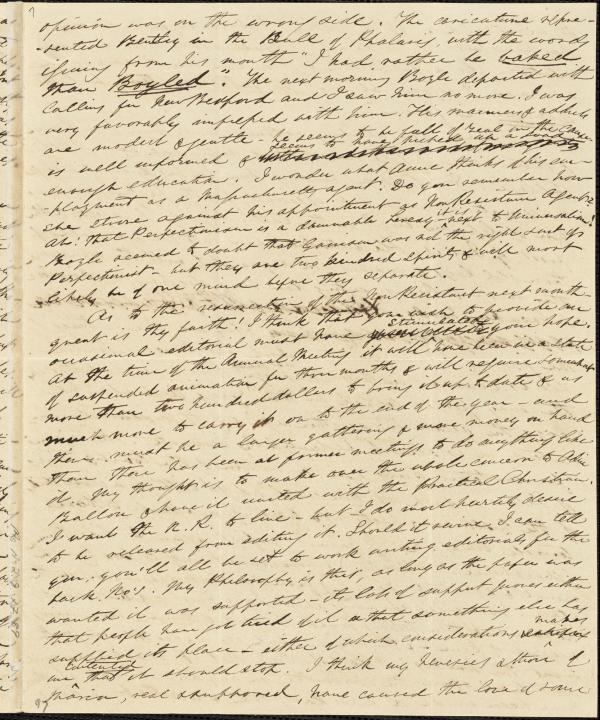 opinion was on the wrong side. The caricature repre-
-sented Bentley in the Bull of Phalaris, with the words
issuing from his mouth "I had rather be baked
than Boyled". The next morning Boyle departed with
Collins for New Bedford and I saw him no more. I was
very favorably impressed with him. His manners & address
are modest & gentle - he seems to be full of zeal in the Cause
is well informed & seems to have picked up a
enough education. I wonder what Anne thinks of his em-
ployment as a Massachusetts agent. Do you remember how
she strove against his appointment as Non Resistance Agent?
Ah! that Perfectionism is a damnable heresy - it is next to Universalism!
Boyle seemed to doubt that Garrison was not the right sort of
Perfectionist - but they are two kindred spirits & will most
likely be of one mind before they separate.
As to the resurrection of the Non Resistant next month -
great is thy faith! I think that your wish to provide an
occasional editorial must have stimulated your hope.
At the time of the Annual Meeting it will have been in a state
of suspended animation for three months & will require somewhat
more than two hundred dollars to bring it up to date & as
much more to carry it on to the end of the year - and
there must be a larger gathering & more money on hand
than there has been at former meetings to do anything like
it. My thought is to make over the whole concern to Adin
Ballou & have it united with the Practical Christian.
I want the N. R. to live - but I do most heartily desire
to be released from editing it. Should it revive, I can tell
you, you'll all be set to work writing editorials for the
back No's. My Philosophy is this, as long as the paper was
wanted it was supported - its lack of support proves either
that people have got tired of it or that something else has
supplied its place - either of which considerations makes
me contented that it should stop. I think my heresies
real & supposed, have caused the love of some